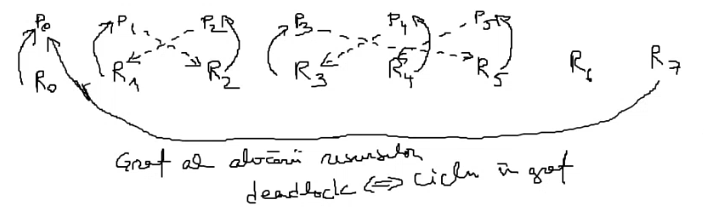 P0 P1 P2 P3 P4 P5
R0 R1 R2 R3 R4 R5 R6 R7
Graf al alocării resurselor
deadlock <=> ciclu în graf